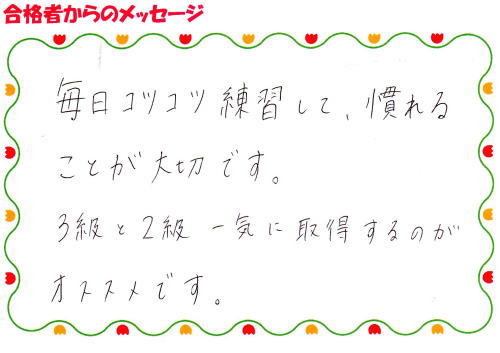 合格者からのメッセージ
毎日コツコツ練習して、慣れる
ことが大切です。
3級と2級 一気に取得するのが
オススメです。